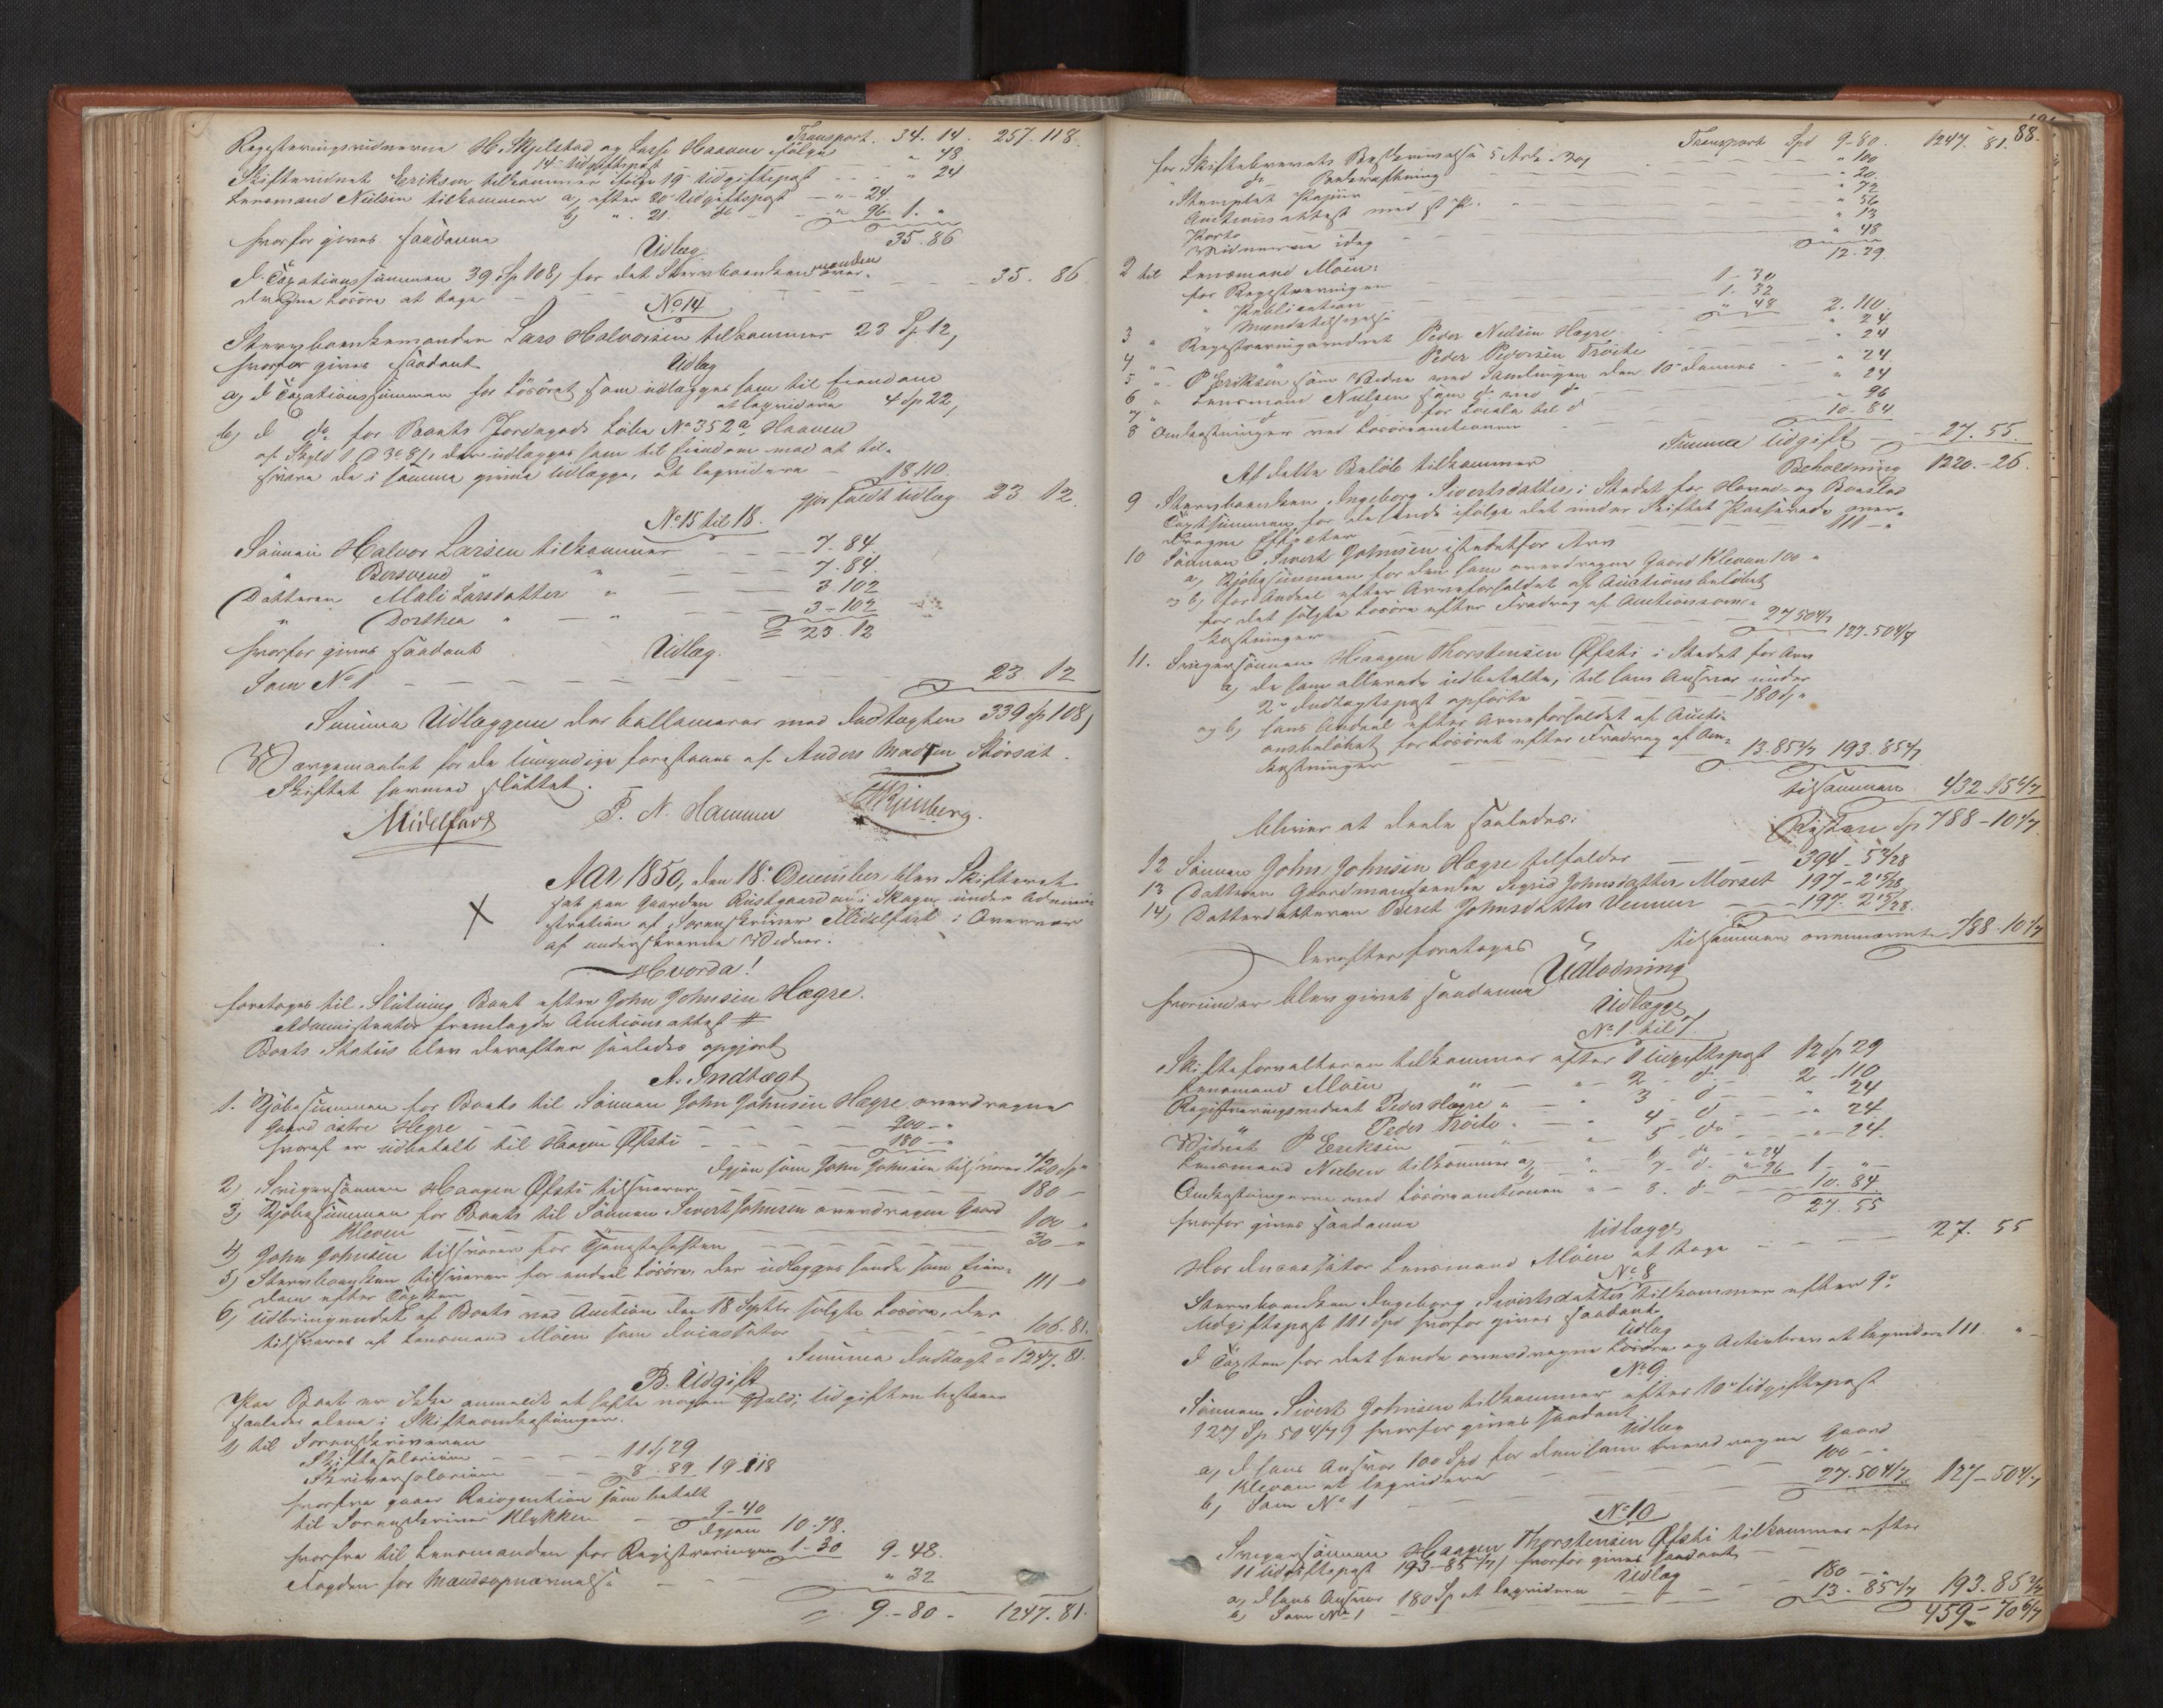 Transport. 34. 14. 257. 118.
Registreringsvidnerne H. Skjelstad og Lasse Haaven ifølge
14de Udgiftspost " 48
Skiftevidnet Eriksen tilkommer ifølge 19de Udgiftspost " 24
Lensmand Nielsen tilkommer a, efter 20de Udgiftspost " 24
b, " 21. do " 96 1. "
hvorfor gives saadanne 35. 86
Udlæg
I Taxationssummen 39 Sp 108, for det Stervboenkemanden over-
dragne Løsøre at tage 35. 86
No 14
Stervboenkemanden Lars Halvorsen tilkommer 23 Sp 12,
hvorfor gives saadant
Udlæg
a, I Taxationssummen for Løsøret som udlægges ham til Eiendom
at liqvidere 4 Sp 22,
b, I do for Boets Jordegods Løbe No 352a, Haaven
af Skyld 1 D 3 ß 8, der udlægges ham til Eiendom mod at til-
svare de i samme givne Udlægge, at liqvidere 18. 110.
gjør fuldt Udlæg 23. 12.
No 15 til 18.
Sønnen Halvor Larsen tilkommer 7. 84.
" Bersvend " 7. 84.
Datteren Mali Larsdatter " 3. 102
" Dorthea " 3 - 102
= 23. 12
hvorfor gives saadant
Udlæg.
Som No 1 23. 12
Summa Udlæggene der ballancerer med Indtægten 339 Sp 108,
Værgemaalet for de Umyndige forestaaes af Anders Madsen Skörset.
Skiftet hermed sluttet.
Midelfart P. N. Hammer
Aar 1850, den 18de December blev Skifteret
sat paa Gaarden Rustgaarden i Skogn under Admini-
stration af Sorenskriver Midelfart i Overvær
af underskrevne Vidner.
Hvorda!
foretoges til Slutning Boet efter John Johnsen Hægre.
Administrator fremlagde Auctionsattest #
Boets Status blev derefter saaledes opgjort
A. Indtægt
1. Kjöbesummen for Boets til Sønnen John Johnsen Hægre overdragne
Gaard østre Hegre 900 - "
hvoraf er udbetalt til Haagen Øfsti 180 - "
Igjen som John Johnsen tilsvarer 720 Sp "
2, Svigersønnen Haagen Øfsti tilsvarer 180 -
3, Kjöbesummen for Boets til Sønnen Sivert Johnsen overdragne Gaard
Kleven 100 "
4, John Johnsen tilsvarer for Tjenestehesten 30 - "
5, Stervboenken tilsvarer for endeel Løsøre, der udlægges hende som Eien-
dom efter Taxten 111 - "
6, Udbringendet af Boets ved Auction den 18 Septbr solgte Løsøre, der
tilsvares af Lensmand Möen som Incassator 106. 81.
Summa Indtægt = 1247. 81.
B. Udgift
Paa Boet er ikke anmeldt at hefte nogen Gjæld; Udgiften bestaaer
saaledes alene i Skifteomkostninger.
1, til Sorenskriveren
Skiftesalarium 11 Sp 29
Skriversalarium 8. 89 19. 118
hvorfra gaaer Recognition som betalt
til Sorenskriver Klykken 9 - 40
Igjen 10. 78.
hvorfra til Lensmanden for Registreringen 1 - 30 9 - 48.
Fogden for Mandsopnævnelse " 32
= 9 - 80 - 1247. 81.
88.
Transport Spd 9 - 80. 1247. 81.
for Skiftebrevets Beskrivelse 5 Ark á 20, " 100
" do Bekræftning " 20.
Stemplet Papiir " 72
Auctionsattest med st. P. " 56
Porto " 13
Vidnerne idag " 48
12. 29
2 til Lensmand Möen:
for Registreringen 1 - 30
" Publication 1. 32
" Mandstilsigelse " 48 2. 110.
3 " Registreringsvidnet Peder Nielsen Hægre " 24
4 " Peder Pedersen Trøite " 24
5 " P Eriksen som Vidne ved Samlingen den 10de dennes " 24.
6 " Lensmand Nielsen som do ved do " 24
7 " do for Locale til do " 96
8 Omkostninger ved Løsøreauctionen 10. 84
Summa Udgift 27. 55.
Beholdning 1220. - 26.
Af dette Beløb tilkommer
9 Stervboenken Ingeborg Sivertsdatter, i Stedet for Hoved- og Boeslod
Taxtsummen for de hende ifølge det under Skiftet Passerede over-
dragne Effecter 111 - "
10 Sønnen Sivert Johnsen istedetfor Arv
a, Kjöbesummen for den ham overdragne Gaard Klevan 100 "
og b, for Andeel efter Arveforholdet af Auctionsbeløbet
for det solgte Løsøre efter Fradrag af Auctionsom-
kostninger 27 50 4/7 127 - 50 4/7
11. Svigersønnen Haagen Thorstensen Øfsti i Stedet for Arv
a, de ham allerede udbetalte, til hans Ansvar under
2de Indtægtspost opførte 180 Sp "
og b, hans Andeel efter Arveforholdet af Aucti-
onsbeløbet for Løsøret efter Fradrag af Om-
kostninger 13. 85 2/7 193. 85 2/7
tilsammen 432. 15 6/7
bliver at deele saaledes: Resten Sp 788 - 10 1/7
12 Sønnen John Johnsen Hægre tilfalder 394 - 5 2/28
13 Datteren Gaardmandsenken Sigrid Johnsdatter Morset 197 - 2 15/28
14, Datterdatteren Beret Johnsdatter Vennen 197. 2 15/28.
tilsammen ovennævnte 788 - 10 1/7
Derefter foretoges
Udlodning
hvorunder blev givet saadanne
Udlægge
No 1 til 7.
Skifteforvalteren tilkommer efter 1 Udgiftspost 12 Sp 29
Lensmand Möen " 2 - do 2 - 110
Registreringsvidnet Peder Hægre " 3 - do " 24
" Peder Trøite " 4 - do " 24
Vidnet P Eriksen " 5 - do " 24.
Lensmand Nielsen tilkommer a, " 6 do " 24
b, " 7 - do " 96 1 - "
Omkostningerne ved Løsøreauctionen " 8. do 10. 84
27. 55
hvorfor gives saadanne
Udlægge
Hos Incassator Lensmand Möen at tage 27. 55
No 8
Stervboenken Ingeborg Sivertsdatter tilkommer efter 9de
Udgiftspost 111 Spd hvorfor gives saadant
Udlæg
I Taxten for det hende overdragne Løsøre og Actiebrev at liqvidere 111. "
No 9
Sønnen Sivert Johnsen tilkommer efter 10de Udgiftspost
127 Sp. 50 4/7 ß hvorfor gives saadant
Udlæg
a, I hans Ansvar 100 Spd for den ham overdragne Gaard
Klevan at liqvidere 100 - "
b, Som No 1 27. 50 4/7 127 - 50 4/7
No 10
Svigersønnen Haagen Thorstensen Øfsti tilkommer efter
11 Udgiftspost 193 - 85 2/7, hvorfor gives saadant
Udlæg
a, I hans Ansvar 180 Sp at liqvidere 180 - "
b, Som No 1 13. 85 2/7 193. 85 2/7
459 - 70 6/7